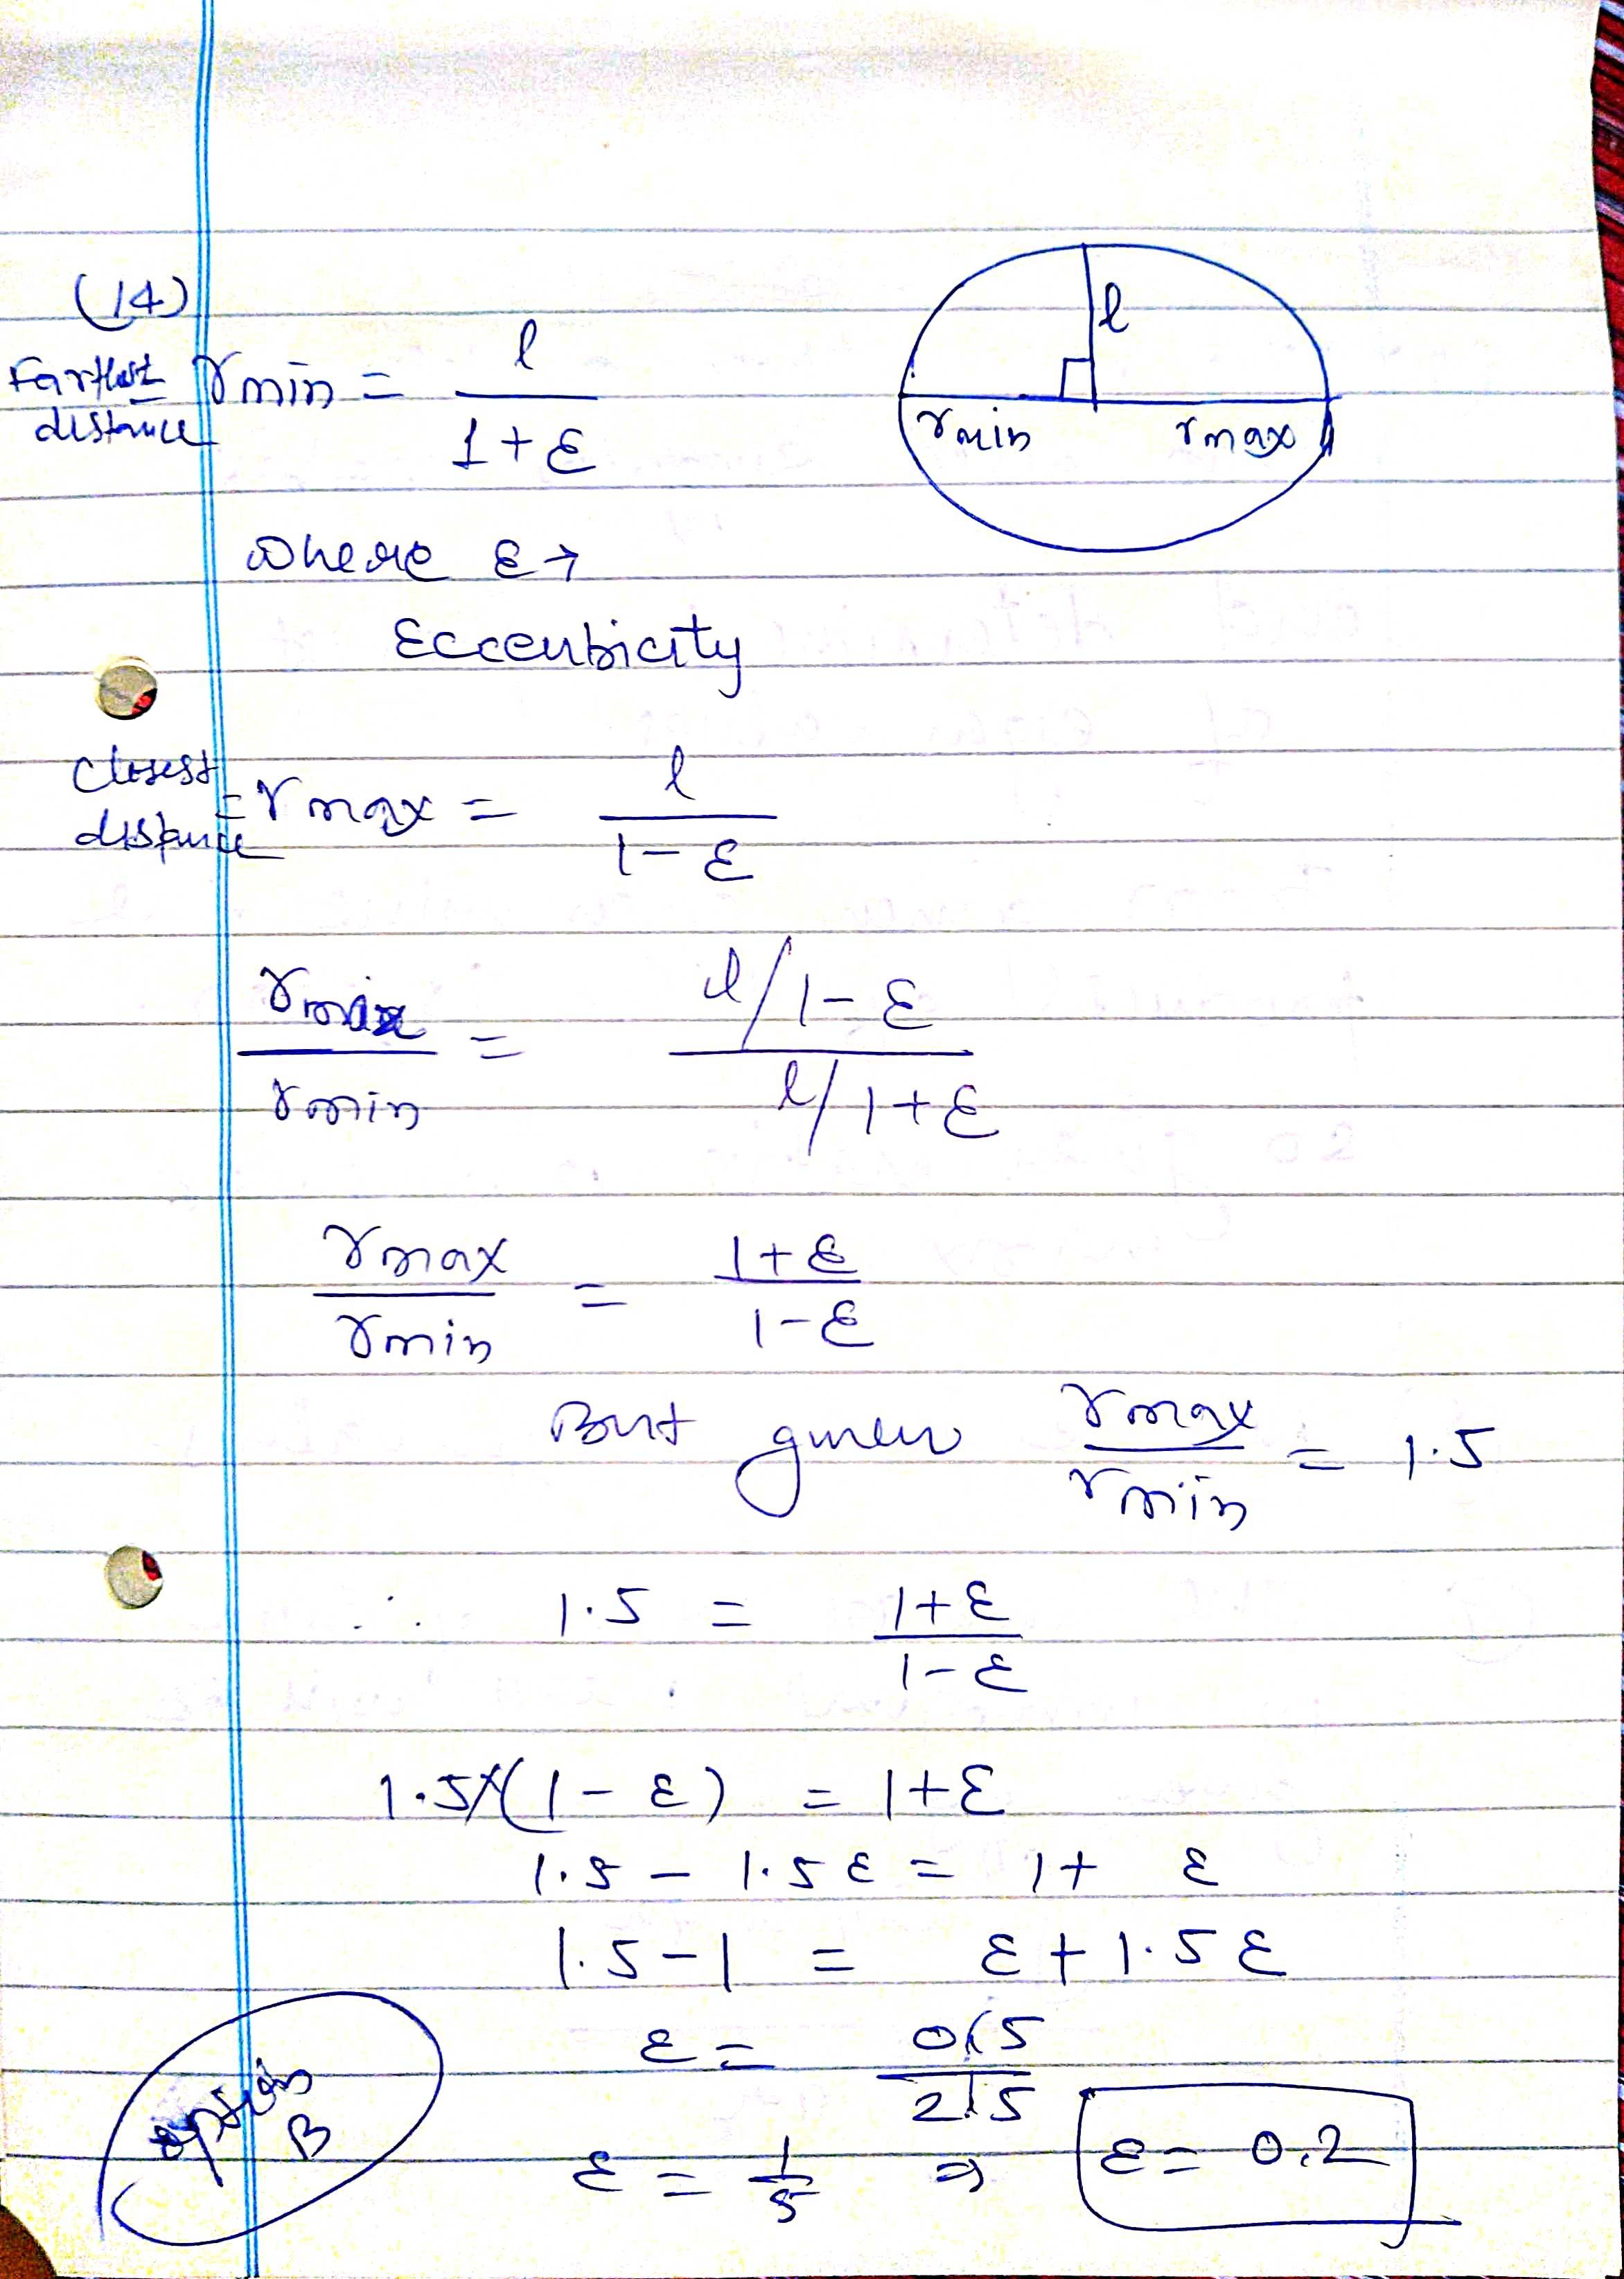 (14)
Farthest distance = rmin = l / 1+ε
l
rmin rmax
where ε →
Eccentricity
Closest distance = rmax = l / 1-ε
rmax / rmin = l/1-ε / l/1+ε
rmax / rmin = 1+ε / 1-ε
But given rmax / rmin = 1.5
∴ 1.5 = 1+ε / 1-ε
1.5×(1-ε) = 1+ε
1.5 - 1.5ε = 1+ ε
1.5-1 = ε+1.5ε
ε = 0.5 / 2.5
ε = 1/5 ⇒ ε = 0.2
option B